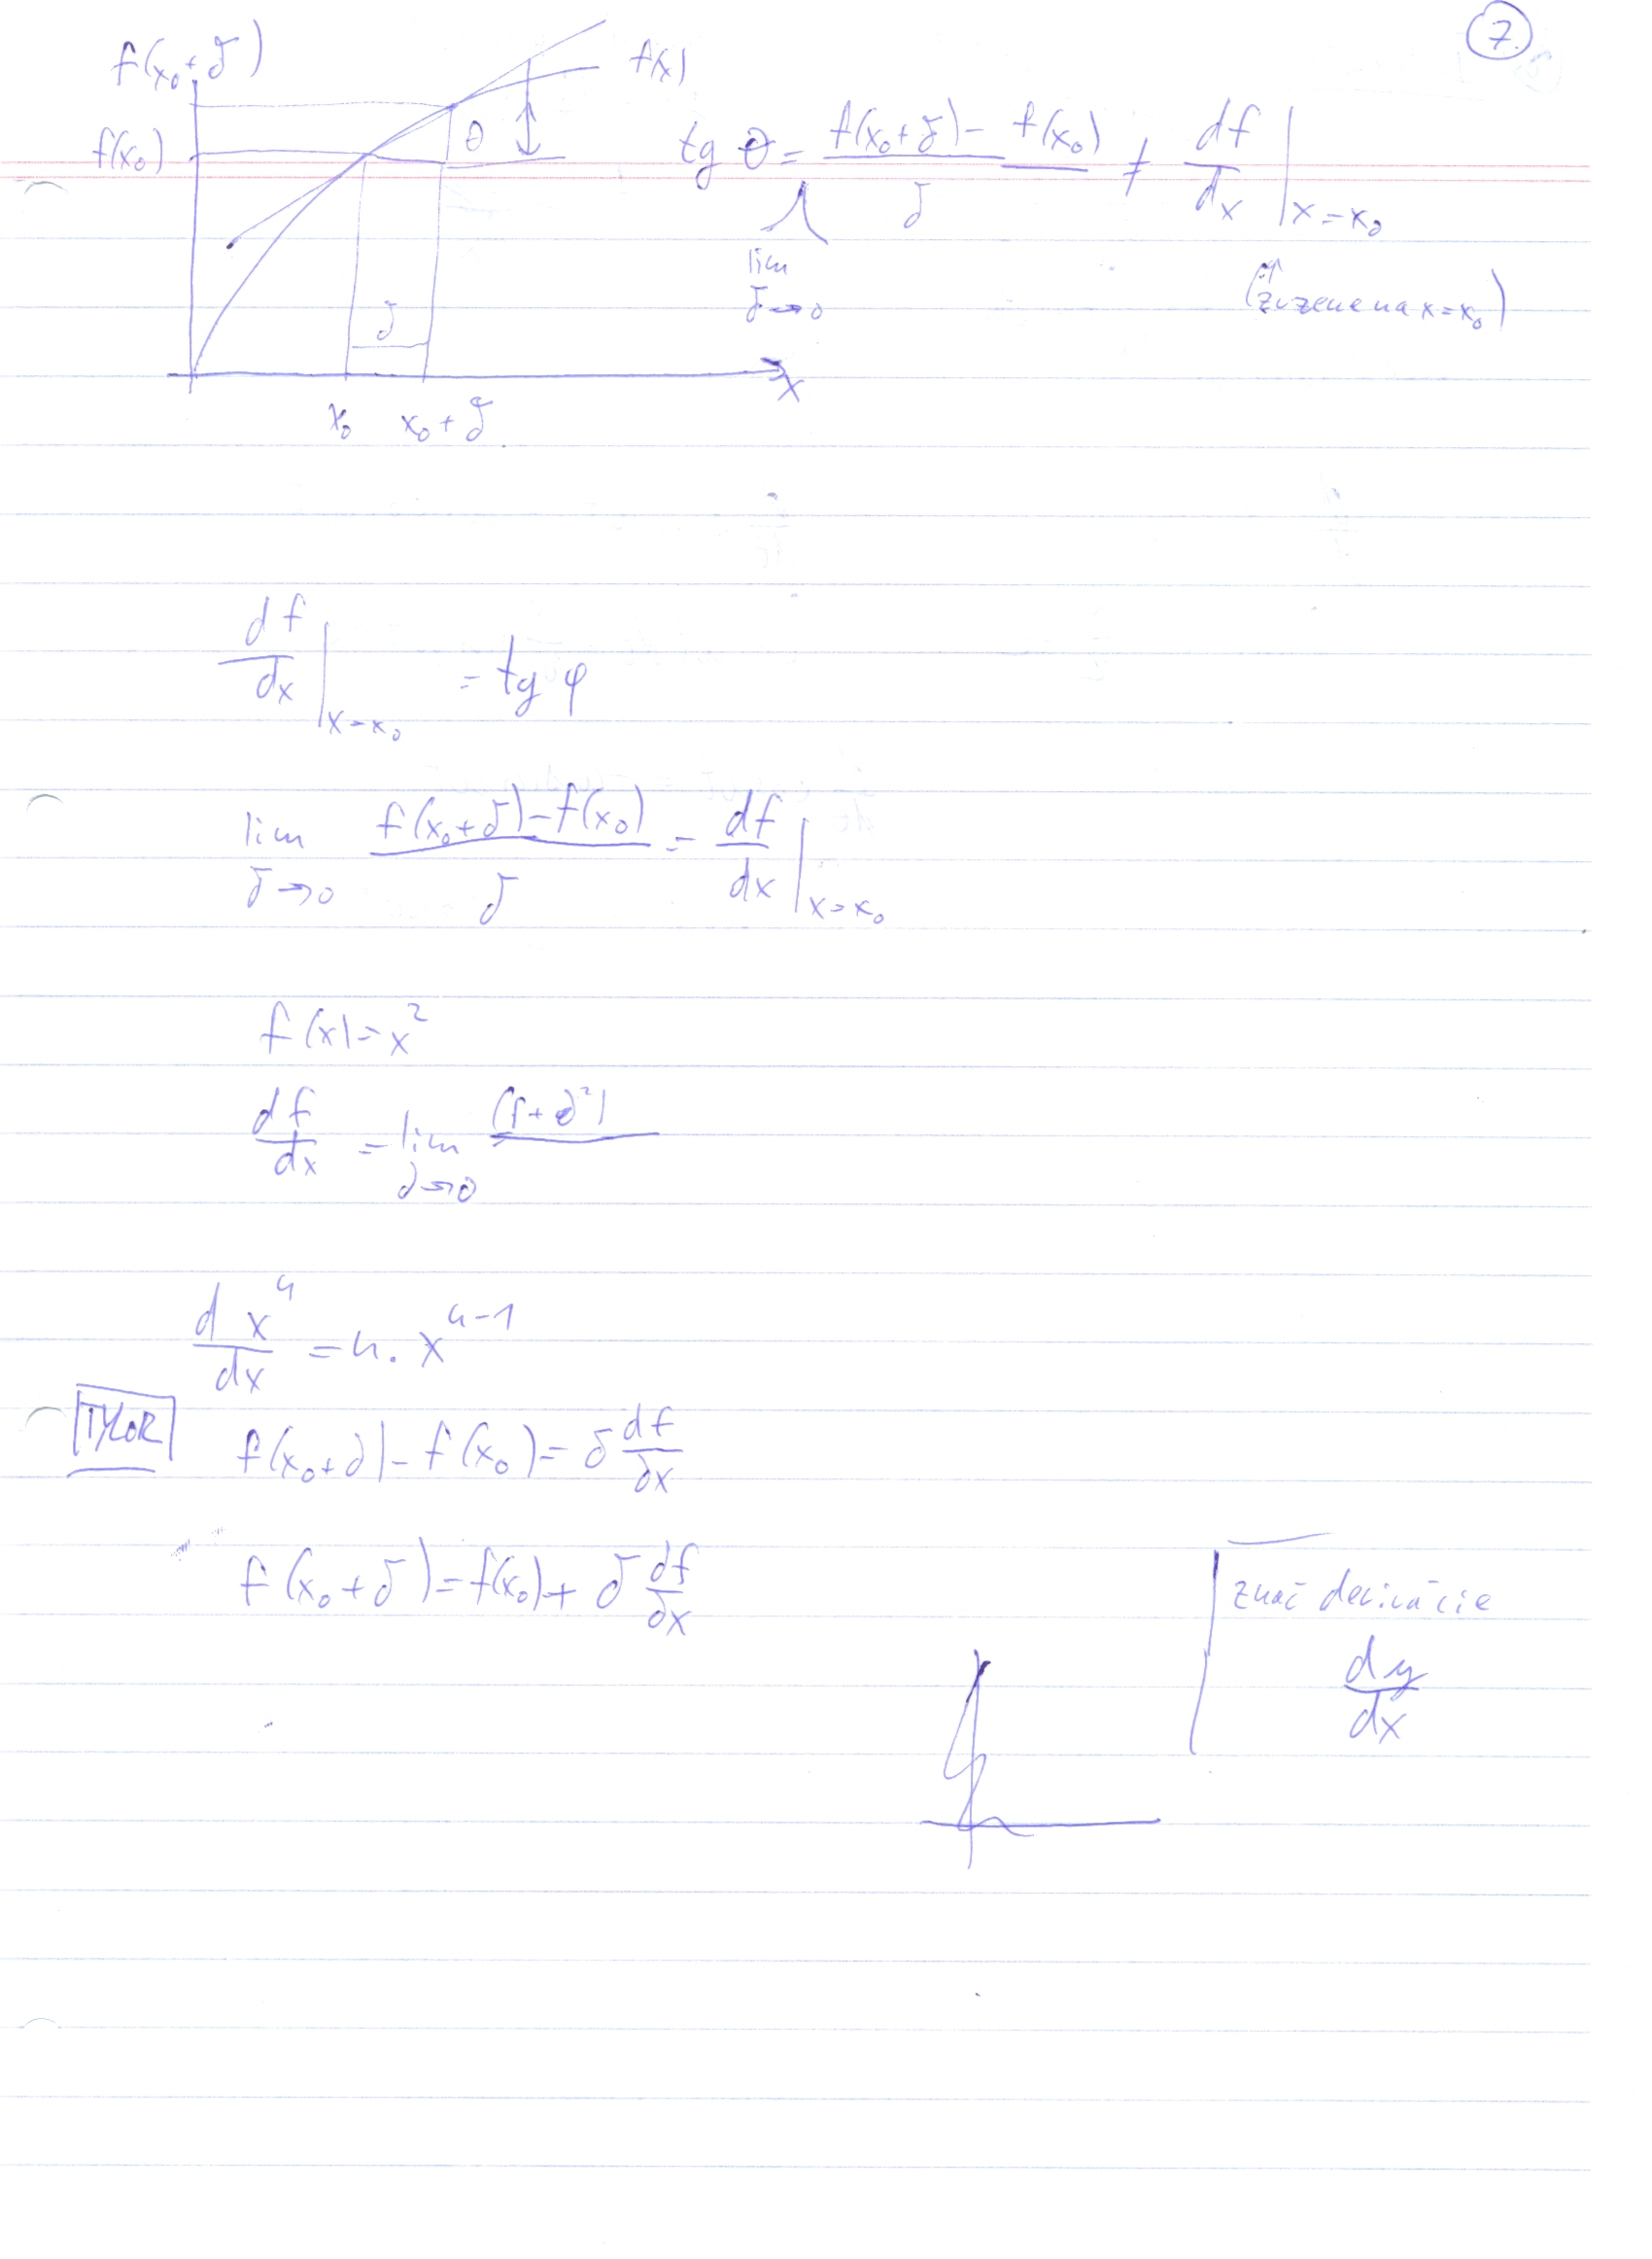 7.
f(x₀+δ)
f(x)
f(x₀)
θ
tg θ = f(x₀+δ) - f(x₀) / δ ≠ df/dx |x=x₀
lim δ→0
(zúžene na x=x₀)
δ
x
x₀ x₀+δ
df/dx |x=x₀ = tg φ
lim δ→0 f(x₀+δ) - f(x₀) / δ = df/dx |x=x₀
f(x) = x²
df/dx = lim ∂→0 (f+∂²)
d xⁿ/dx = n. xⁿ⁻¹
TYLOR
f(x₀+∂) - f(x₀) = δ df/∂x
f(x₀+δ) = f(x₀) + δ df/∂x
znač derivácie
dy/dx